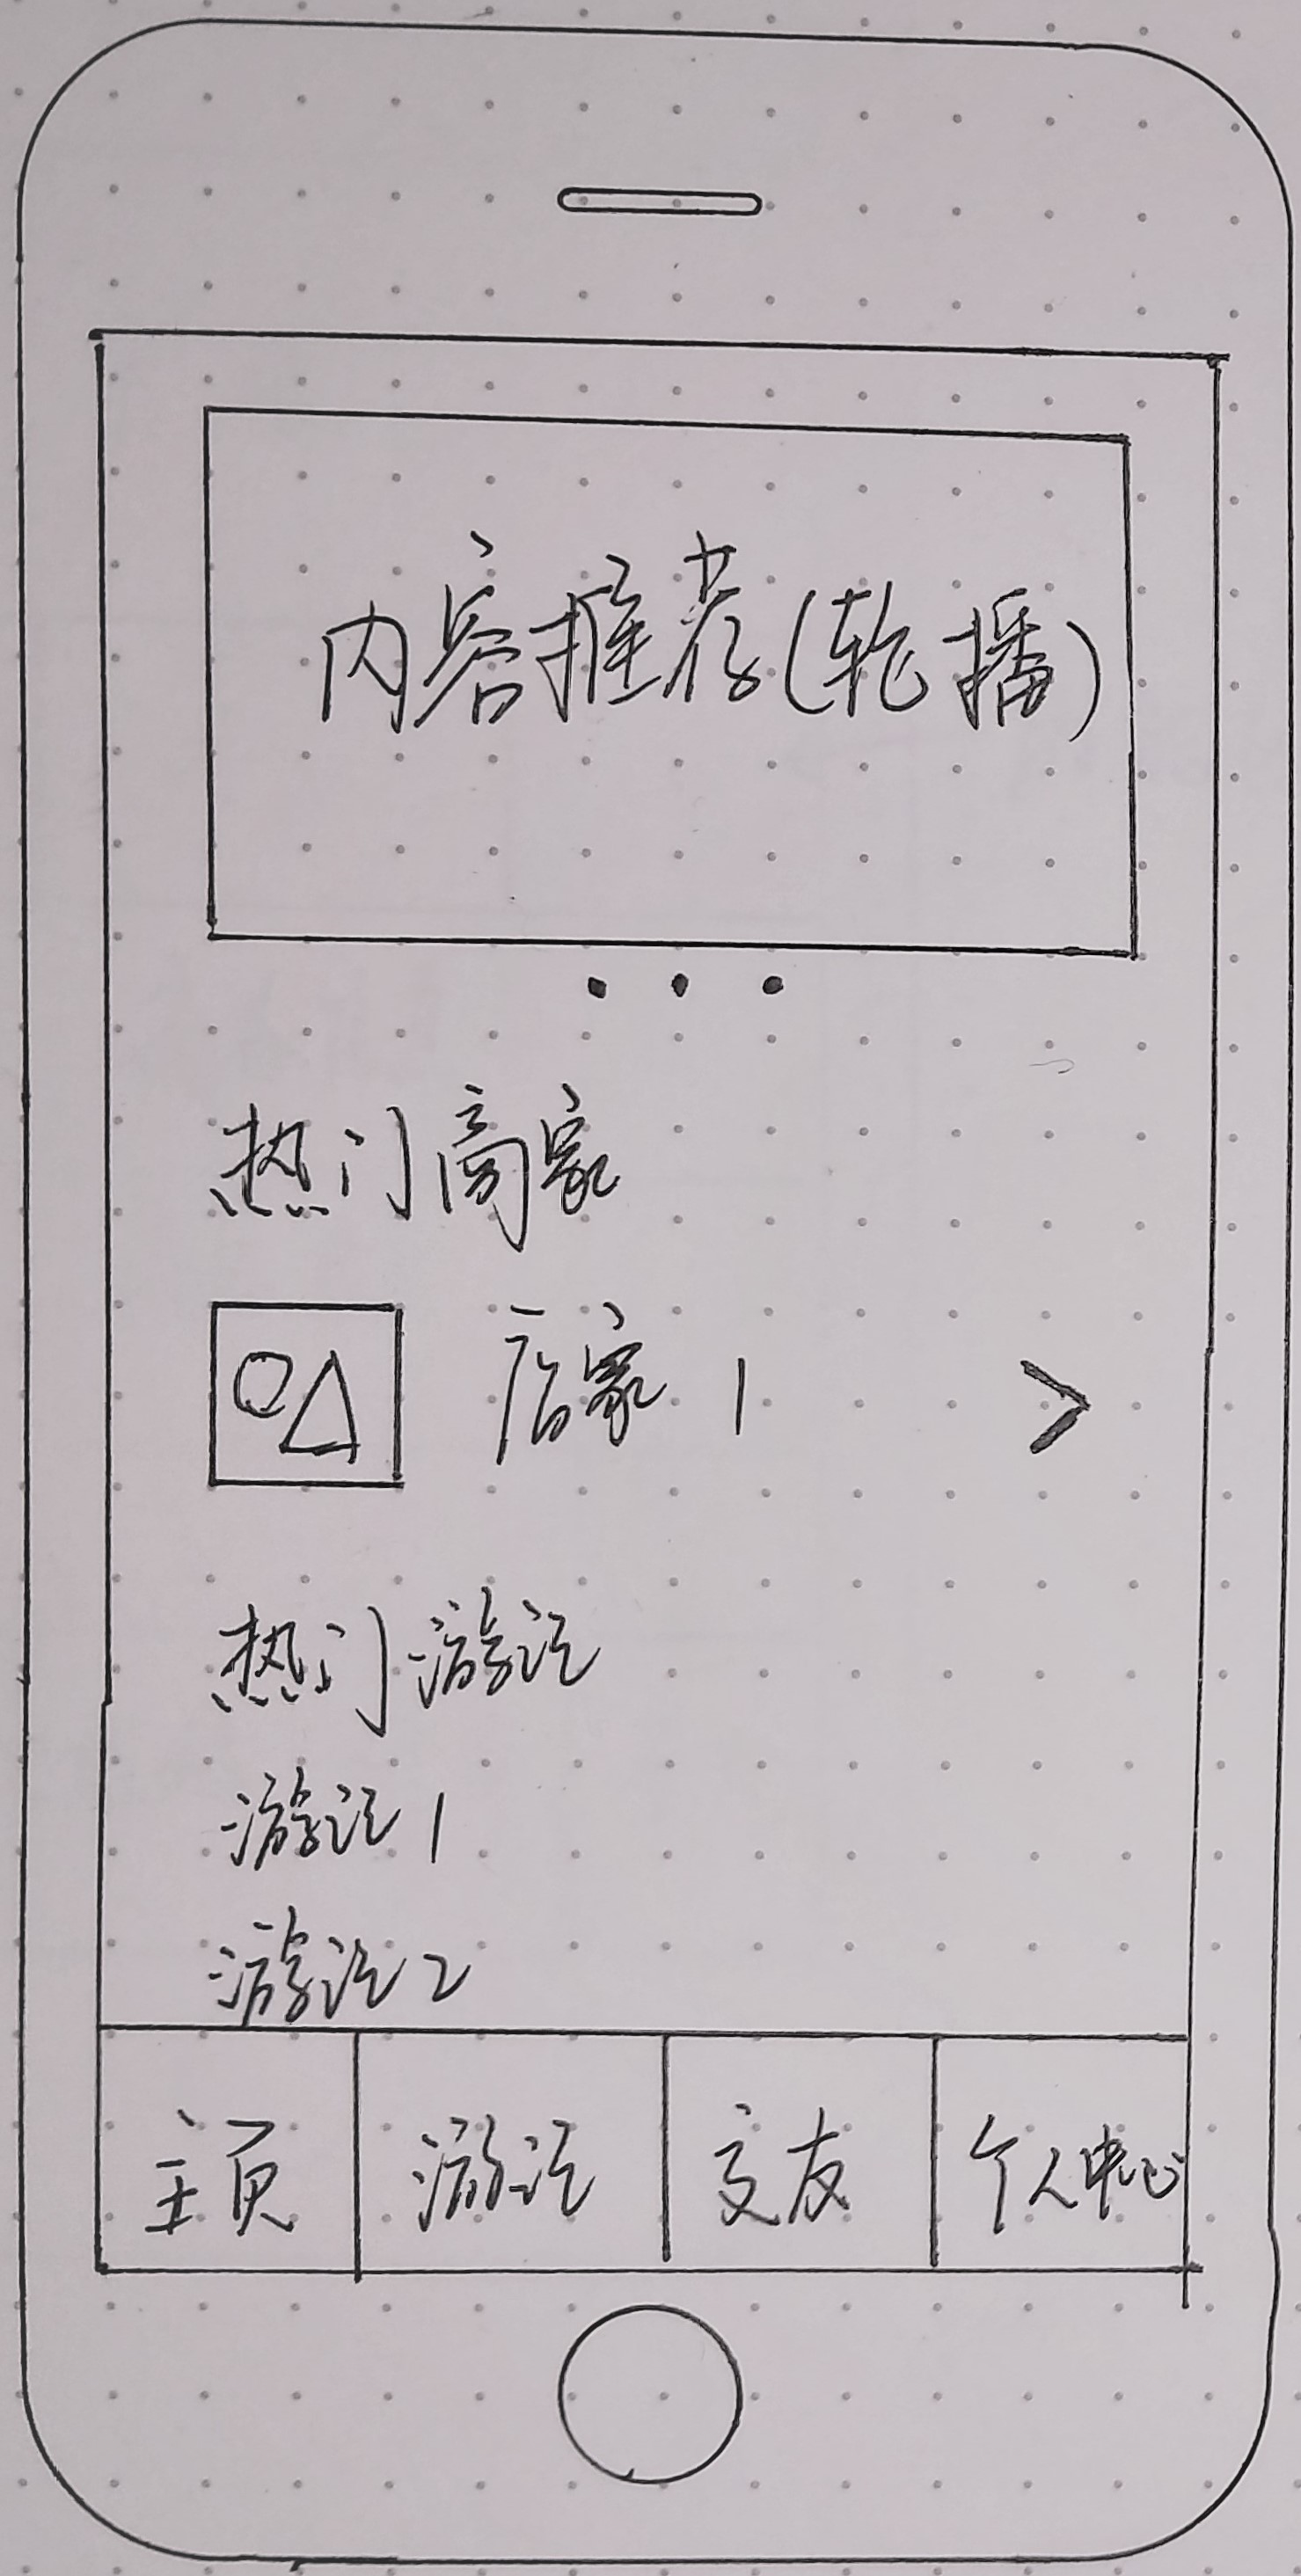 内容推荐(轮播)
热门商家
店家 1
>
热门游记
游记1
游记2
主页 游记 交友 个人中心